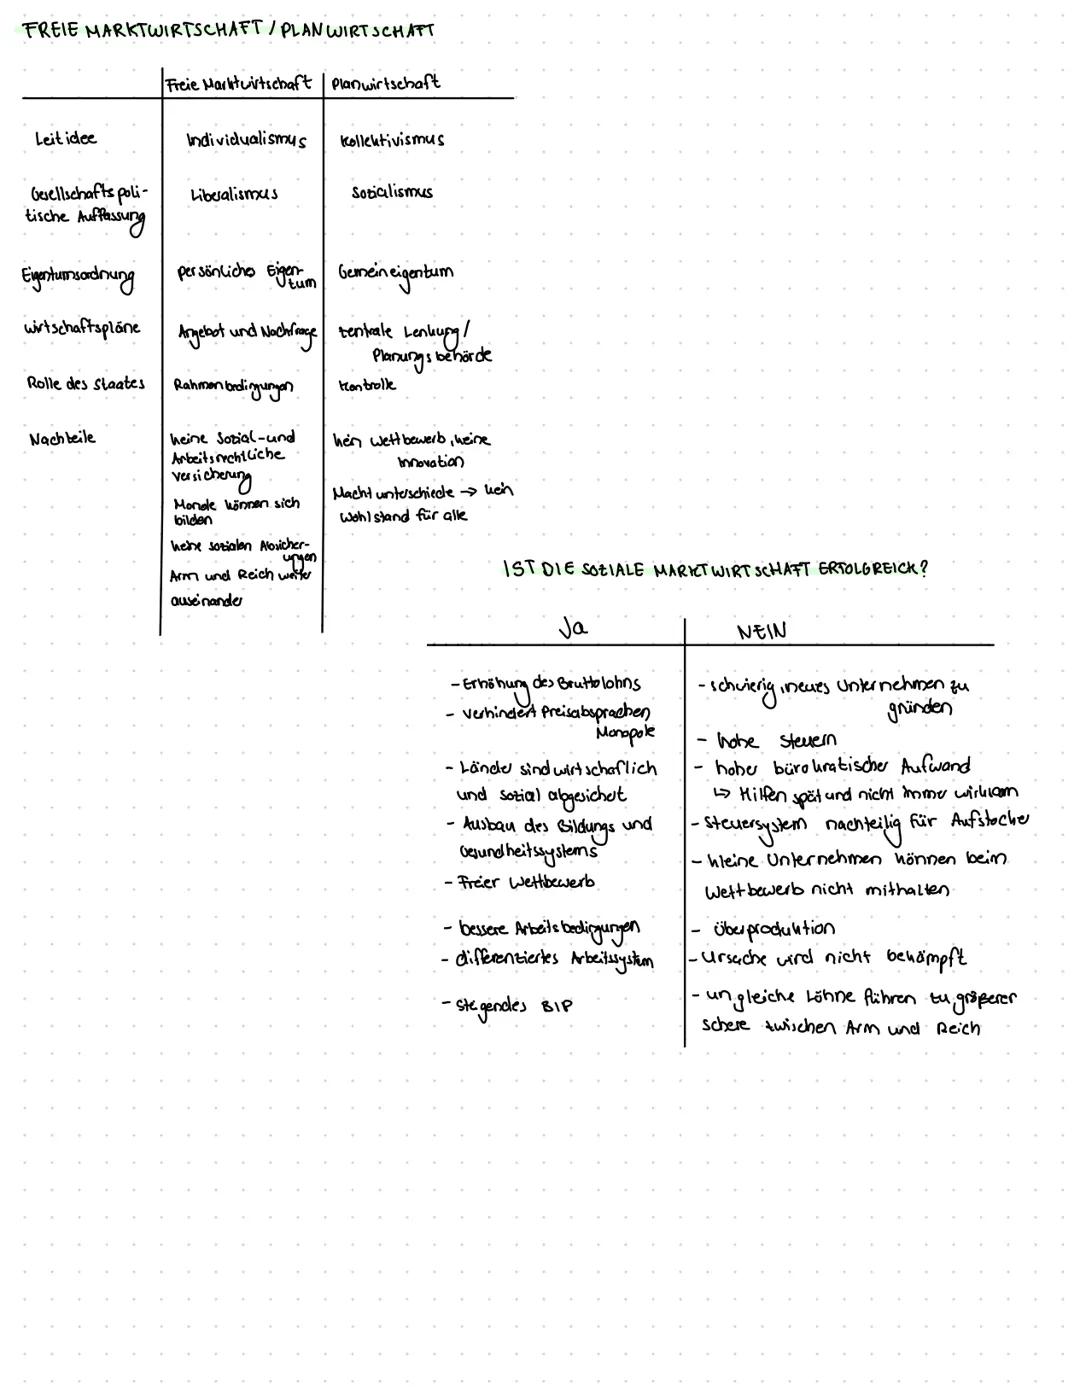 FREIE MARKTWIRTSCHAFT / PLANWIRTSCHAFT
Freie Marktwirtschaft Planwirtschaft
Leitidee Individualismus Kollektivismus
Gesellschaftspoli- Liberalismus Sozialismus
tische Auffassung
Eigentumsordnung persönliches Eigen- Gemeineigentum
tum
Wirtschaftspläne Angebot und Nachfrage zentrale Lenkung /
Planungsbehörde
Rolle des Staates Rahmenbedingungen Kontrolle
Nachteile keine Sozial- und kein Wettbewerb, keine
Arbeitsrechtliche Innovation
Versicherung
Machtunterschiede → kein
können sich
bilden Wohlstand für alle
keine sozialen Absicher-
ungen
Arm und Reich weiter
auseinander
IST DIE SOZIALE MARKTWIRTSCHAFT ERFOLGREICH?
Ja NEIN
- Erhöhung des Bruttolohns - schwierig, neues Unternehmen zu
gründen
- verhindert Preisabsprachen
Monopole
- hohe Steuern
- Länder sind wirtschaflich - hoher bürokratischer Aufwand
und sozial abgesichert ↳ Hilfen spät und nicht immer wirksam
- Ausbau des Bildungs und - Steuersystem nachteilig für Aufstocker
Gesundheitssystems - kleine Unternehmen können beim
- Freier Wettbewerb Wettbewerb nicht mithalten
- bessere Arbeitsbedingungen - Überproduktion
- differenziertes Arbeitssystem - Ursache wird nicht bekämpft
- steigendes BIP - ungleiche Löhne führen zu größerer
Schere zwischen Arm und Reich